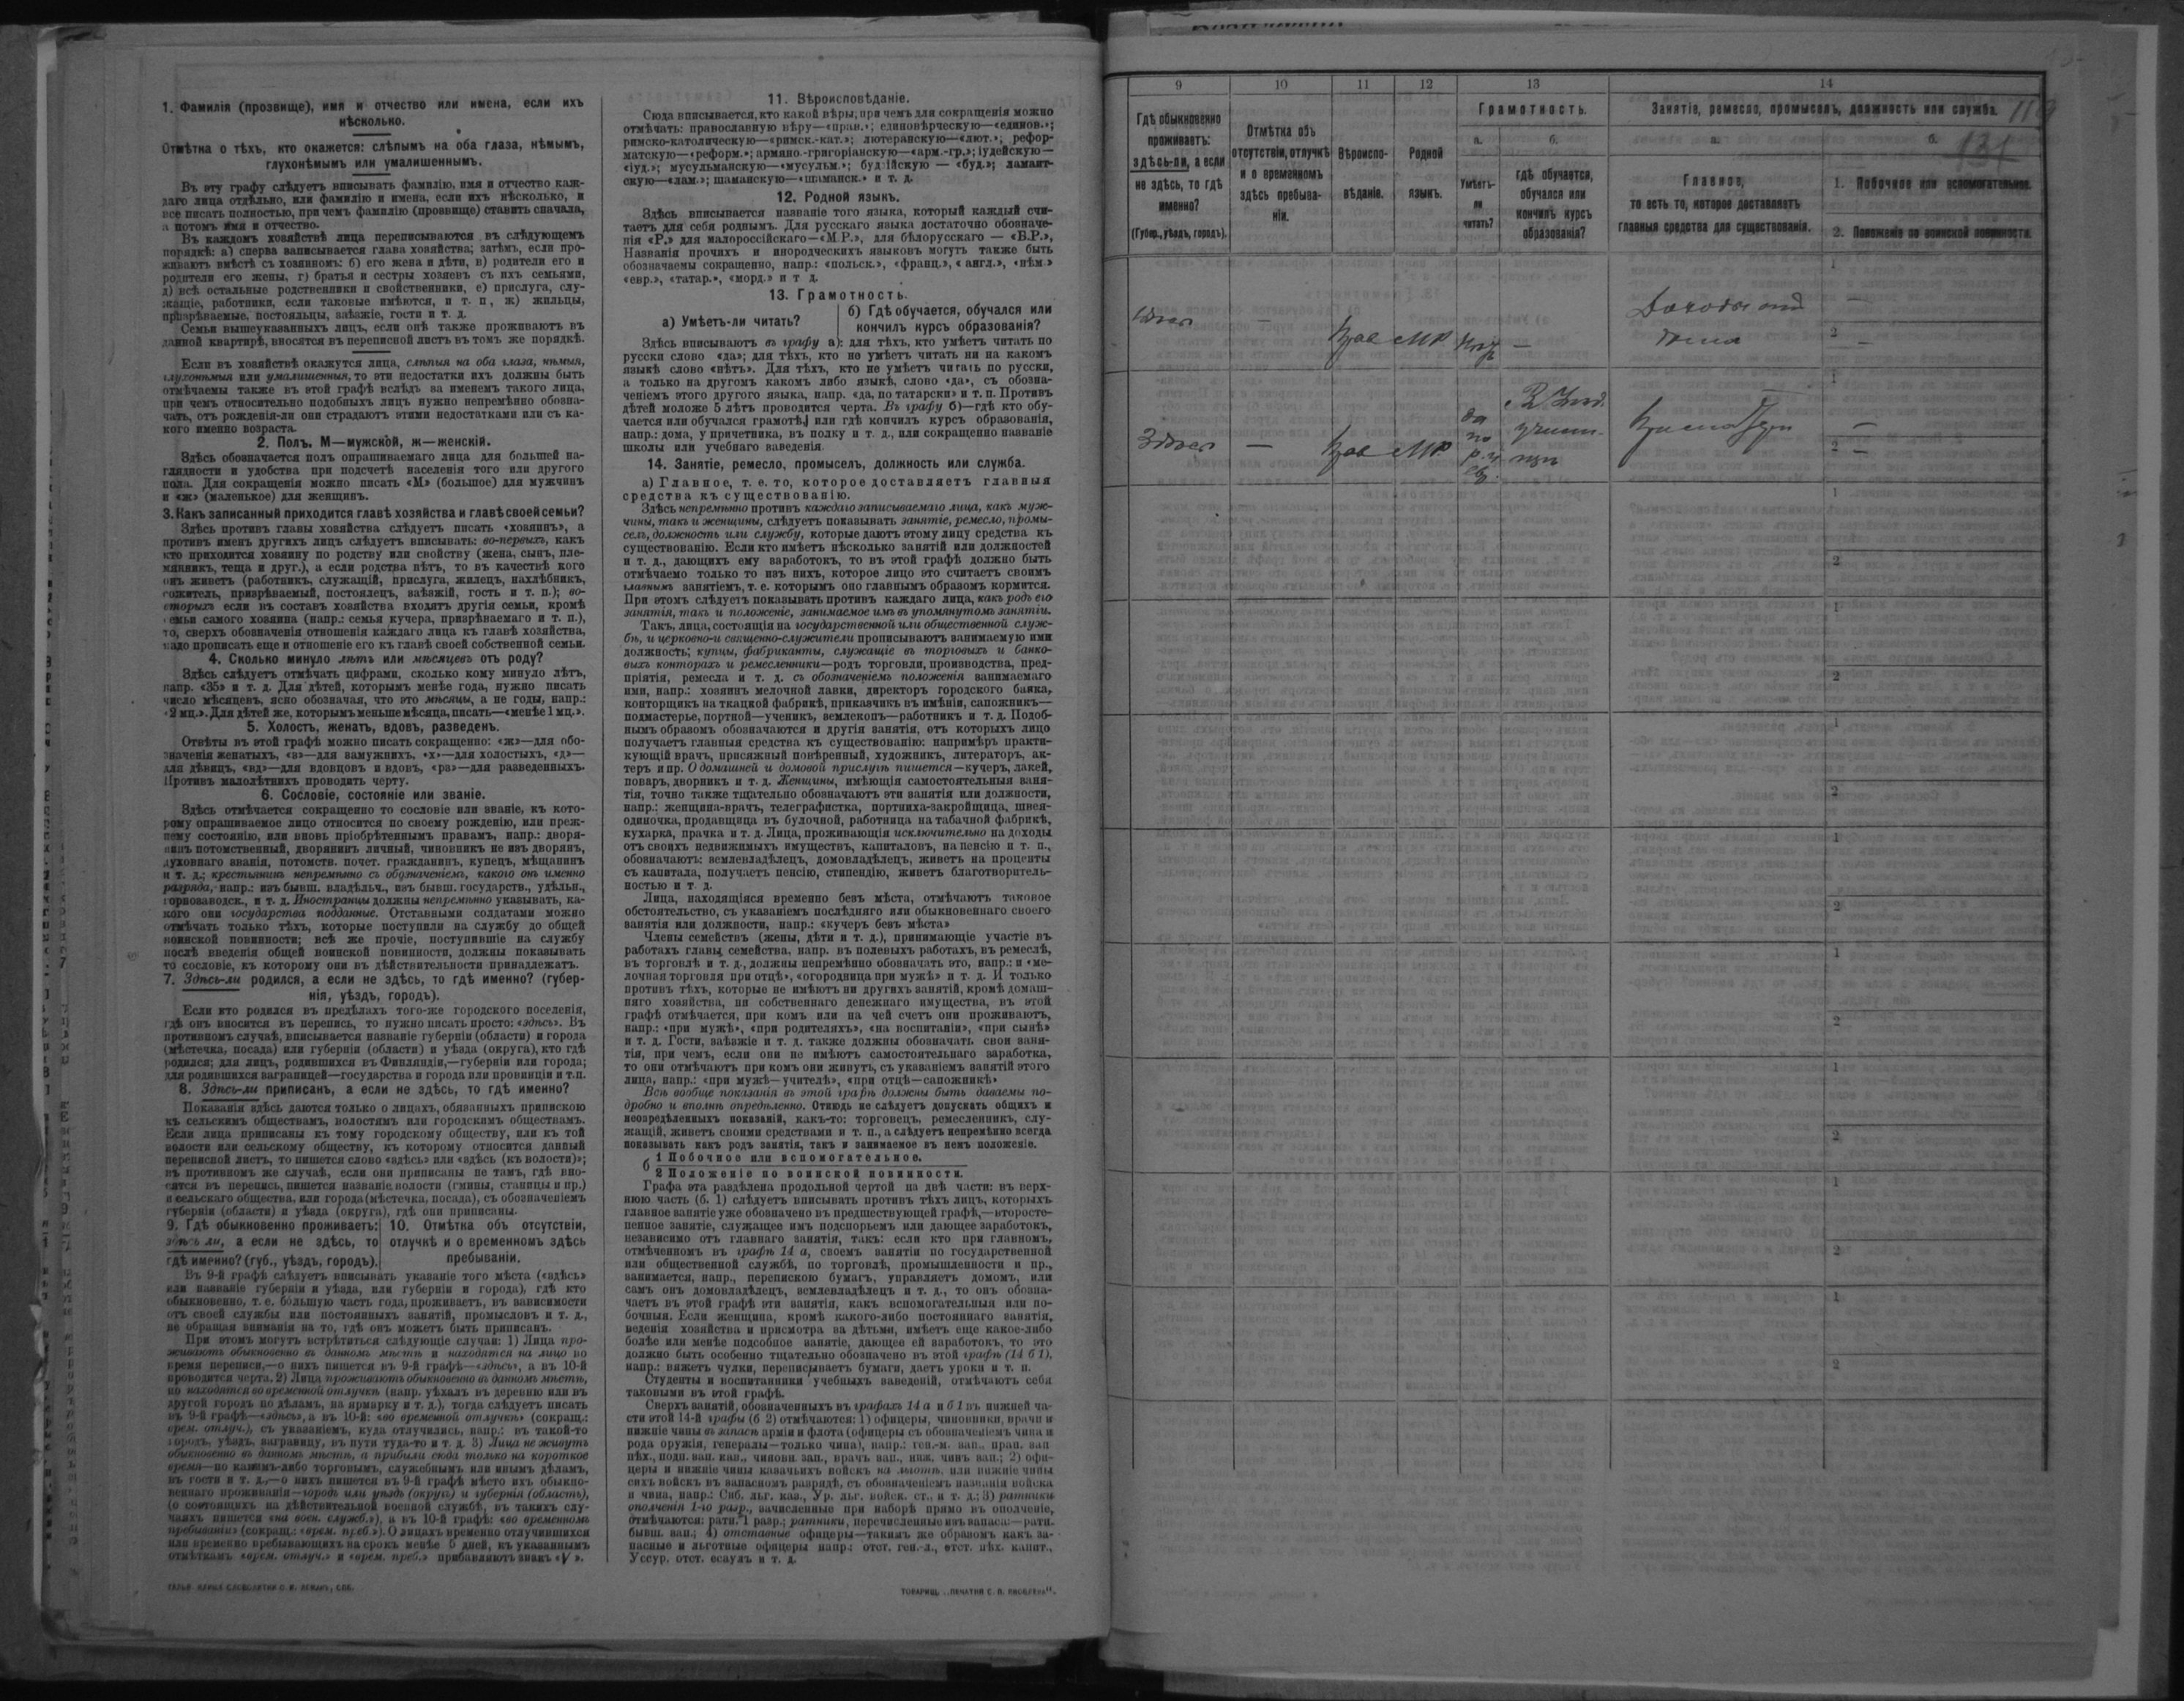 1. Фамилія (прозвище), имя и отчество или имена, если ихъ
нѣсколько.
Отмѣтка о тѣхъ, кто окажется: слѣпымъ на оба глаза, нѣмымъ,
глухонѣмымъ или умалишеннымъ.
Въ эту графу слѣдуетъ вписывать фамилію, имя и отчество каж-
даго лица отдѣльно, или фамилію и имена, если ихъ нѣсколько, и
все писать полностью, при чемъ фамилію (прозвище) ставить сначала,
а потомъ имя и отчество.
Въ каждомъ хозяйствѣ лица переписываются въ слѣдующемъ
порядкѣ: а) сперва записывается глава хозяйства; затѣмъ, если про-
живаютъ вмѣстѣ съ хозяиномъ: б) его жена и дѣти, в) родители его и
родители его жены, г) братья и сестры хозяевъ съ ихъ семьями,
д) всѣ остальные родственники и свойственники, е) прислуга, слу-
жащіе, работники, если таковые имѣются, и т. п, ж) жильцы,
призрѣваемые, постояльцы, заѣзжіе, гости и т. д.
Семьи вышеуказанныхъ лицъ, если онѣ также проживаютъ въ
данной квартирѣ, вносятся въ переписной листъ въ томъ же порядкѣ.
Если въ хозяйствѣ окажутся лица, слѣпыя на оба глаза, нѣмыя,
глухонѣмыя или умалишенныя, то эти недостатки ихъ должны быть
отмѣчаемы также въ этой графѣ вслѣдъ за именемъ такого лица,
при чемъ относительно подобныхъ лицъ нужно непремѣнно обозна-
чать, отъ рожденія-ли они страдаютъ этими недостатками или съ ка-
кого именно возраста.
2. Полъ. М—мужской, ж—женскій.
Здѣсь обозначается полъ опрашиваемаго лица для большей на-
глядности и удобства при подсчетѣ населенія того или другого
пола. Для сокращенія можно писать «М» (большое) для мужчинъ
и «ж» (маленькое) для женщинъ.
3. Какъ записанный приходится главѣ хозяйства и главѣ своей семьи?
Здѣсь противъ главы хозяйства слѣдуетъ писать «хозяинъ», а
противъ именъ другихъ лицъ слѣдуетъ вписывать: во-первыхъ, какъ
кто приходится хозяину по родству или свойству (жена, сынъ, пле-
мянникъ, теща и друг.), а если родства нѣтъ, то въ качествѣ кого
онъ живетъ (работникъ, служащій, прислуга, жилецъ, нахлѣбникъ,
сожитель, призрѣваемый, постоялецъ, заѣзжій, гость и т. п.); во-
вторыхъ если въ составъ хозяйства входятъ другія семьи, кромѣ
семьи самого хозяина (напр.: семья кучера, призрѣваемаго и т. п.),
то, сверхъ обозначенія отношенія каждаго лица къ главѣ хозяйства,
надо прописать еще и отношеніе его къ главѣ своей собственной семьи.
4. Сколько минуло лѣтъ или мѣсяцевъ отъ роду?
Здѣсь слѣдуетъ отмѣчать цифрами, сколько кому минуло лѣтъ,
напр. «35» и т. д. Для дѣтей, которымъ менѣе года, нужно писать
число мѣсяцевъ, ясно обозначая, что это мѣсяцы, а не годы, напр.:
«2 мц.». Для дѣтей же, которымъ меньше мѣсяца, писать—«менѣе 1 мц.».
5. Холостъ, женатъ, вдовъ, разведенъ.
Отвѣты въ этой графѣ можно писать сокращенно: «ж»—для обо-
значенія женатыхъ, «з»—для замужнихъ, «х»—для холостыхъ, «д»—
для дѣвицъ, «вд»—для вдовцовъ и вдовъ, «рз»—для разведенныхъ.
Противъ малолѣтнихъ проводить черту.
6. Сословіе, состояніе или званіе.
Здѣсь отмѣчается сокращенно то сословіе или званіе, къ кото-
рому опрашиваемое лицо относится по своему рожденію, или преж-
нему состоянію, или вновь пріобрѣтеннымъ правамъ, напр.: дворя-
нинъ потомственный, дворянинъ личный, чиновникъ не изъ дворянъ,
духовнаго званія, потомств. почет. гражданинъ, купецъ, мѣщанинъ
и т. д.; крестьянинъ непремѣнно съ обозначеніемъ, какого онъ именно
разряда, напр.: изъ бывш. владѣльч., изъ бывш. государств., удѣльн.,
горнозаводск., и т. д. Иностранцы должны непремѣнно указывать, ка-
кого они государства подданные. Отставными солдатами можно
отмѣчать только тѣхъ, которые поступили на службу до общей
воинской повинности; всѣ же прочіе, поступившіе на службу
послѣ введенія общей воинской повинности, должны показывать
то сословіе, къ которому они въ дѣйствительности принадлежатъ.
7. Здѣсь-ли родился, а если не здѣсь, то гдѣ именно? (губер-
нія, уѣздъ, городъ).
Если кто родился въ предѣлахъ того-же городского поселенія,
гдѣ онъ вносится въ перепись, то нужно писать просто: «здѣсь». Въ
противномъ случаѣ, вписывается названіе губерніи (области) и города
(мѣстечка, посада) или губерніи (области) и уѣзда (округа), кто гдѣ
родился; для лицъ, родившихся въ Финляндіи,—губерніи или города;
для родившихся заграницей—государства и города или провинціи и т.п.
8. Здѣсь-ли приписанъ, а если не здѣсь, то гдѣ именно?
Показанія здѣсь даются только о лицахъ, обязанныхъ припискою
къ сельскимъ обществамъ, волостямъ или городскимъ обществамъ.
Если лица приписаны къ тому городскому обществу, или къ той
волости или сельскому обществу, къ которому относится данный
переписной листъ, то пишется слово «здѣсь» или «здѣсь (къ волости)»;
въ противномъ же случаѣ, если они приписаны не тамъ, гдѣ вно-
сятся въ перепись, пишется названіе волости (гмины, станицы и пр.)
и сельскаго общества, или города (мѣстечка, посада), съ обозначеніемъ
губерніи (области) и уѣзда (округа), гдѣ они приписаны.
9. Гдѣ обыкновенно проживаетъ:
здѣсь ли, а если не здѣсь, то
гдѣ именно? (губ., уѣздъ, городъ).
10. Отмѣтка объ отсутствіи,
отлучкѣ и о временномъ здѣсь
пребываніи.
Въ 9-й графѣ слѣдуетъ вписывать указаніе того мѣста («здѣсь»
или названіе губерніи и уѣзда, или губерніи и города), гдѣ кто
обыкновенно, т. е. большую часть года, проживаетъ, въ зависимости
отъ своей службы или постоянныхъ занятій, промысловъ и т. д.,
не обращая вниманія на то, гдѣ онъ можетъ быть приписанъ.
При этомъ могутъ встрѣтиться слѣдующіе случаи: 1) Лица про-
живаютъ обыкновенно въ данномъ мѣстѣ и находятся на лицо во
время переписи,—о нихъ пишется въ 9-й графѣ—«здѣсь», а въ 10-й
проводится черта. 2) Лица проживаютъ обыкновенно въ данномъ мѣстѣ,
но находятся во временной отлучкѣ (напр. уѣхалъ въ деревню или въ
другой городъ по дѣламъ, на ярмарку и т. д.), тогда слѣдуетъ писать
въ 9-й графѣ—«здѣсь», а въ 10-й: «во временной отлучкѣ» (сокращ.:
врем. отлуч.), съ указаніемъ, куда отлучились, напр.: въ такой-то
городъ, уѣздъ, заграницу, въ пути туда-то и т. д. 3) Лица не живутъ
обыкновенно въ данномъ мѣстѣ, а прибыли сюда только на короткое
время—по какимъ-либо торговымъ, служебнымъ или инымъ дѣламъ,
въ гости и т. д.,—о нихъ пишется въ 9-й графѣ мѣсто ихъ обыкно-
веннаго проживанія—городъ или уѣздъ (округъ) и губернія (область),
(о состоящихъ на дѣйствительной военной службѣ, въ такихъ слу-
чаяхъ пишется «на воен. служб.»), а въ 10-й графѣ: «во временномъ
пребываніи» (сокращ.: «врем. преб.»). О лицахъ временно отлучившихся
или временно пребывающихъ на срокъ менѣе 5 дней, къ указаннымъ
отмѣткамъ «врем. отлуч.» и «врем. преб.» прибавляютъ знакъ «V».
11. Вѣроисповѣданіе.
Сюда вписывается, кто какой вѣры; при чемъ для сокращенія можно
отмѣчать: православную вѣру—«прав.»; единовѣрческую—«единов.»;
римско-католическую—«римск.-кат.»; лютеранскую—«лют.»; рефор-
матскую—«реформ.»; армяно.-григоріанскую—«арм.-гр.»; іудейскую—
«іуд.»; мусульманскую—«мусульм.»; буддійскую — «буд.»; ламаит-
скую—«лам.»; шаманскую—«шаманск.» и т. д.
12. Родной языкъ.
Здѣсь вписывается названіе того языка, который каждый счи-
таетъ для себя роднымъ. Для русскаго языка достаточно обозначе-
нія «Р.» для малороссійскаго—«М.Р.», для бѣлорусскаго — «Б.Р.»,
Названія прочихъ и инородческихъ языковъ могутъ также быть
обозначаемы сокращенно, напр.: «польск.», «франц.», «англ.», «нѣм.»
«евр.», «татар.», «морд.» и т д.
13. Грамотность.
а) Умѣетъ-ли читать?
б) Гдѣ обучается, обучался или
кончилъ курсъ образованія?
Здѣсь вписываютъ въ графу а): для тѣхъ, кто умѣетъ читать по
русски слово «да»; для тѣхъ, кто не умѣетъ читать ни на какомъ
языкѣ слово «нѣтъ». Для тѣхъ, кто не умѣетъ читать по русски,
а только на другомъ какомъ либо языкѣ, слово «да», съ обозна-
ченіемъ этого другого языка, напр. «да, по татарски» и т. п. Противъ
дѣтей моложе 5 лѣтъ проводится черта. Въ графу б)—гдѣ кто обу-
чается или обучался грамотѣ, или гдѣ кончилъ курсъ образованія,
напр.: дома, у причетника, въ полку и т. д., или сокращенно названіе
школы или учебнаго заведенія.
14. Занятіе, ремесло, промыселъ, должность или служба.
а) Главное, т. е. то, которое доставляетъ главныя
средства къ существованію.
Здѣсь непремѣнно противъ каждаго записываемаго лица, какъ муж-
чины, такъ и женщины, слѣдуетъ показывать занятіе, ремесло, промы-
селъ, должность или службу, которые даютъ этому лицу средства къ
существованію. Если кто имѣетъ нѣсколько занятій или должностей
и т. д., дающихъ ему заработокъ, то въ этой графѣ должно быть
отмѣчаемо только то изъ нихъ, которое лицо это считаетъ своимъ
главнымъ занятіемъ, т. е. которымъ оно главнымъ образомъ кормится.
При этомъ слѣдуетъ показывать противъ каждаго лица, какъ родъ его
занятія, такъ и положеніе, занимаемое имъ въ упомянутомъ занятіи.
Такъ, лица, состоящія на государственной или общественной служ-
бѣ, и церковно-и священно-служители прописываютъ занимаемую ими
должность; купцы, фабриканты, служащіе въ торговыхъ и банко-
выхъ конторахъ и ремесленники—родъ торговли, производства, пред-
пріятія, ремесла и т. д. съ обозначеніемъ положенія занимаемаго
ими, напр.: хозяинъ мелочной лавки, директоръ городского банка,
конторщикъ на ткацкой фабрикѣ, приказчикъ въ имѣніи, сапожникъ—
подмастерье, портной—ученикъ, землекопъ—работникъ и т. д. Подоб-
нымъ образомъ обозначаются и другія занятія, отъ которыхъ лицо
получаетъ главныя средства къ существованію: напримѣръ практи-
кующій врачъ, присяжный повѣренный, художникъ, литераторъ, ак-
теръ и пр. О домашней и домовой прислугѣ пишется—кучеръ, лакей,
поваръ, дворникъ и т. д. Женщины, имѣющія самостоятельныя заня-
тія, точно также тщательно обозначаютъ эти занятія или должности,
напр.: женщина-врачъ, телеграфистка, портниха-закройщица, швея-
одиночка, продавщица въ булочной, работница на табачной фабрикѣ,
кухарка, прачка и т. д. Лица, проживающія исключительно на доходы
отъ своихъ недвижимыхъ имуществъ, капиталовъ, на пенсію и т. п.,
обозначаютъ: землевладѣлецъ, домовладѣлецъ, живетъ на проценты
съ капитала, получаетъ пенсію, стипендію, живетъ благотворитель-
ностью и т. д.
Лица, находящіяся временно безъ мѣста, отмѣчаютъ таковое
обстоятельство, съ указаніемъ послѣдняго или обыкновеннаго своего
занятія или должности, напр.: «кучеръ безъ мѣста»
Члены семействъ (жены, дѣти и т. д.), принимающіе участіе въ
работахъ главы семейства, напр. въ полевыхъ работахъ, въ ремеслѣ,
въ торговлѣ и т. д., должны непремѣнно обозначать это, напр.: и «ме-
лочная торговля при отцѣ», «огородница при мужѣ» и т. д. И только
противъ тѣхъ, которые не имѣютъ ни другихъ занятій, кромѣ домаш-
няго хозяйства, ни собственнаго денежнаго имущества, въ этой
графѣ отмѣчается, при комъ или на чей счетъ они проживаютъ,
напр.: «при мужѣ», «при родителяхъ», «на воспитаніи», «при сынѣ»
и т. д. Гости, заѣзжіе и т. д. также должны обозначать свои заня-
тія, при чемъ, если они не имѣютъ самостоятельнаго заработка,
то они отмѣчаютъ при комъ они живутъ, съ указаніемъ занятій этого
лица, напр.: «при мужѣ—учителѣ», «при отцѣ—сапожникѣ»
Всѣ вообще показанія въ этой графѣ должны быть даваемы по-
дробно и вполнѣ опредѣленно. Отнюдь не слѣдуетъ допускать общихъ и
неопредѣленныхъ показаній, какъ-то: торговецъ, ремесленникъ, слу-
жащій, живетъ своими средствами и т. п., а слѣдуетъ непремѣнно всегда
показывать какъ родъ занятія, такъ и занимаемое въ немъ положеніе.
б 1 Побочное или вспомогательное.
2 Положеніе по воинской повинности.
Графа эта раздѣлена продольной чертой на двѣ части: въ верх-
нюю часть (б. 1) слѣдуетъ вписывать противъ тѣхъ лицъ, которыхъ
главное занятіе уже обозначено въ предшествующей графѣ,—второсте-
пенное занятіе, служащее имъ подспорьемъ или дающее заработокъ,
независимо отъ главнаго занятія, такъ: если кто при главномъ,
отмѣченномъ въ графѣ 14 а, своемъ занятіи по государственной
или общественной службѣ, по торговлѣ, промышленности и пр.,
занимается, напр., перепискою бумагъ, управляетъ домомъ, или
самъ онъ домовладѣлецъ, землевладѣлецъ и т. д., то онъ обозна-
чаетъ въ этой графѣ эти занятія, какъ вспомогательныя или по-
бочныя. Если женщина, кромѣ какого-либо постояннаго занятія,
веденія хозяйства и присмотра за дѣтьми, имѣетъ еще какое-либо
болѣе или менѣе подсобное занятіе, дающее ей заработокъ, то это
должно быть особенно тщательно обозначено въ этой графѣ (14 б 1),
напр.: вяжетъ чулки, переписываетъ бумаги, даетъ уроки и т. п.
Студенты и воспитанники учебныхъ заведеній, отмѣчаютъ себя
таковыми въ этой графѣ.
Сверхъ занятій, обозначенныхъ въ графахъ 14 а и б 1 въ нижней ча-
сти этой 14-й графы (б 2) отмѣчаются: 1) офицеры, чиновники, врачи и
нижніе чины въ запасѣ арміи и флота (офицеры съ обозначеніемъ чина и
рода оружія, генералы—только чина), напр.: ген.-м. зап., прап. зап
пѣх., подп. зап. кав., чиновн. зап., врачъ зап., ниж. чинъ зап.; 2) офи-
церы и нижніе чины казачьихъ войскъ на льготѣ, или нижніе чины
сихъ войскъ въ запасномъ разрядѣ, съ обозначеніемъ названія войска
и чина, напр.: Сиб. льг. каз., Ур. льг. войск. ст., и т. д.; 3) ратники
ополченія 1-го разр., зачисленные при наборѣ прямо въ ополченіе,
отмѣчаются: ратн. 1 разр.; ратники, перечисленные изъ запаса:—ратн.
бывш. зап.; 4) отставные офицеры—такимъ же образомъ какъ за-
пасные и льготные офицеры напр.: отст. ген.-л., отст. пѣх. капит.,
Уссур. отст. есаулъ и т. д.
9 10 11 12 13 14
Гдѣ обыкновенно
проживаетъ:
здѣсь-ли, а если
не здѣсь, то гдѣ
именно?
(Губер., уѣздъ, городъ).
Отмѣтка объ
отсутствіи, отлучкѣ
и о временномъ
здѣсь пребыва-
ніи.
Вѣроиспо-
вѣданіе.
Родной
языкъ.
Грамотность.
а.
Умѣетъ-
ли
читать?
б.
гдѣ обучается,
обучался или
кончилъ курсъ
образованія?
Занятіе, ремесло, промыселъ, должность или служба.
а.
Главное,
то есть то, которое доставляетъ
главныя средства для существованія.
б.
131
1. Побочное или вспомогательное.
2. Положеніе по воинской повинности.
1
Здѣсь — Прав МР —
Доходы отъ
дома
2
1
Здѣсь — Прав МР да
2
1
2
1
2
1
2
1
2
1
2
1
2
1
2
1
2